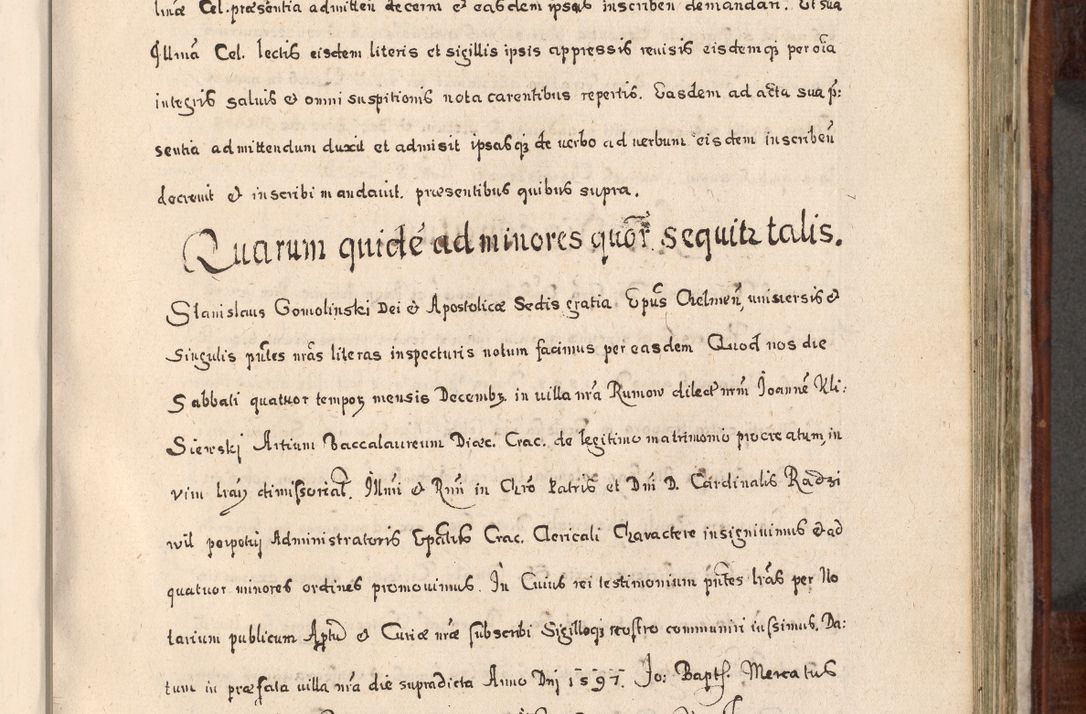 linæ Cel. præsentia admitteñ decerni et easdem ipsas inscriben demandari. Et sua
Illmã Cel. lectis eisdem literis et sigillis ipsis appressis reuisis eisdemqȝ per oĩa
integris saluis et omni suspitionis nota carentibus repertis. Easdem ad acta sua p̃:
sentia admittendum duxit et admisit ipsasqȝ de uerbo ad uerbum eisdem inscribeñ
decreuit et inscribi mandauit. præsentibus quibus supra.
Quarum quidé ad minores quor̃. sequitr talis.
Stanislaus Gomolinski Dei et Apostolicæ Sedis gratia Ep̃us Chelmeñ, uniuersis et
Singulis pñtes nr̃as literas inspecturis notum facimus per easdem Quod nos die
Sabbati quatuor temporȝ mensis Decembȝ in uilla nr̃a Rumow dilectum nr̃m Joannẽ Kli:
Sierskj Artium Baccalaureum Diæc. Crac. de legitimo matrimonio procreatum, in
vim lr̃arȝ dimissorial. Illmi et Rmi in Chr̃o Patris et Dñi D. Cardinalis Radzi
wil perpetuj Administratoris Ep̃atus Crac. Clericali Charactere insigniuimus et ad
quatuor minores ordines promouimus. In Cuius rei testimonium pñtes lr̃as per No
tarium publicum Aptũ et Curiæ nr̃æ subscribi Sigilloqȝ nostro communiri iussimus. Da:
tum in præfata uilla nr̃a die supradicta Anno Dñj 1597. Jo: Bapt. Mercatus